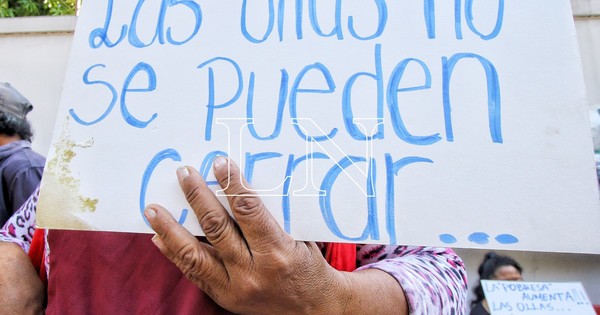 Las ollas no
se pueden
cerrar...
LN
"LA POBRESA"
AUMENTA!!!
LAS OLLAS...